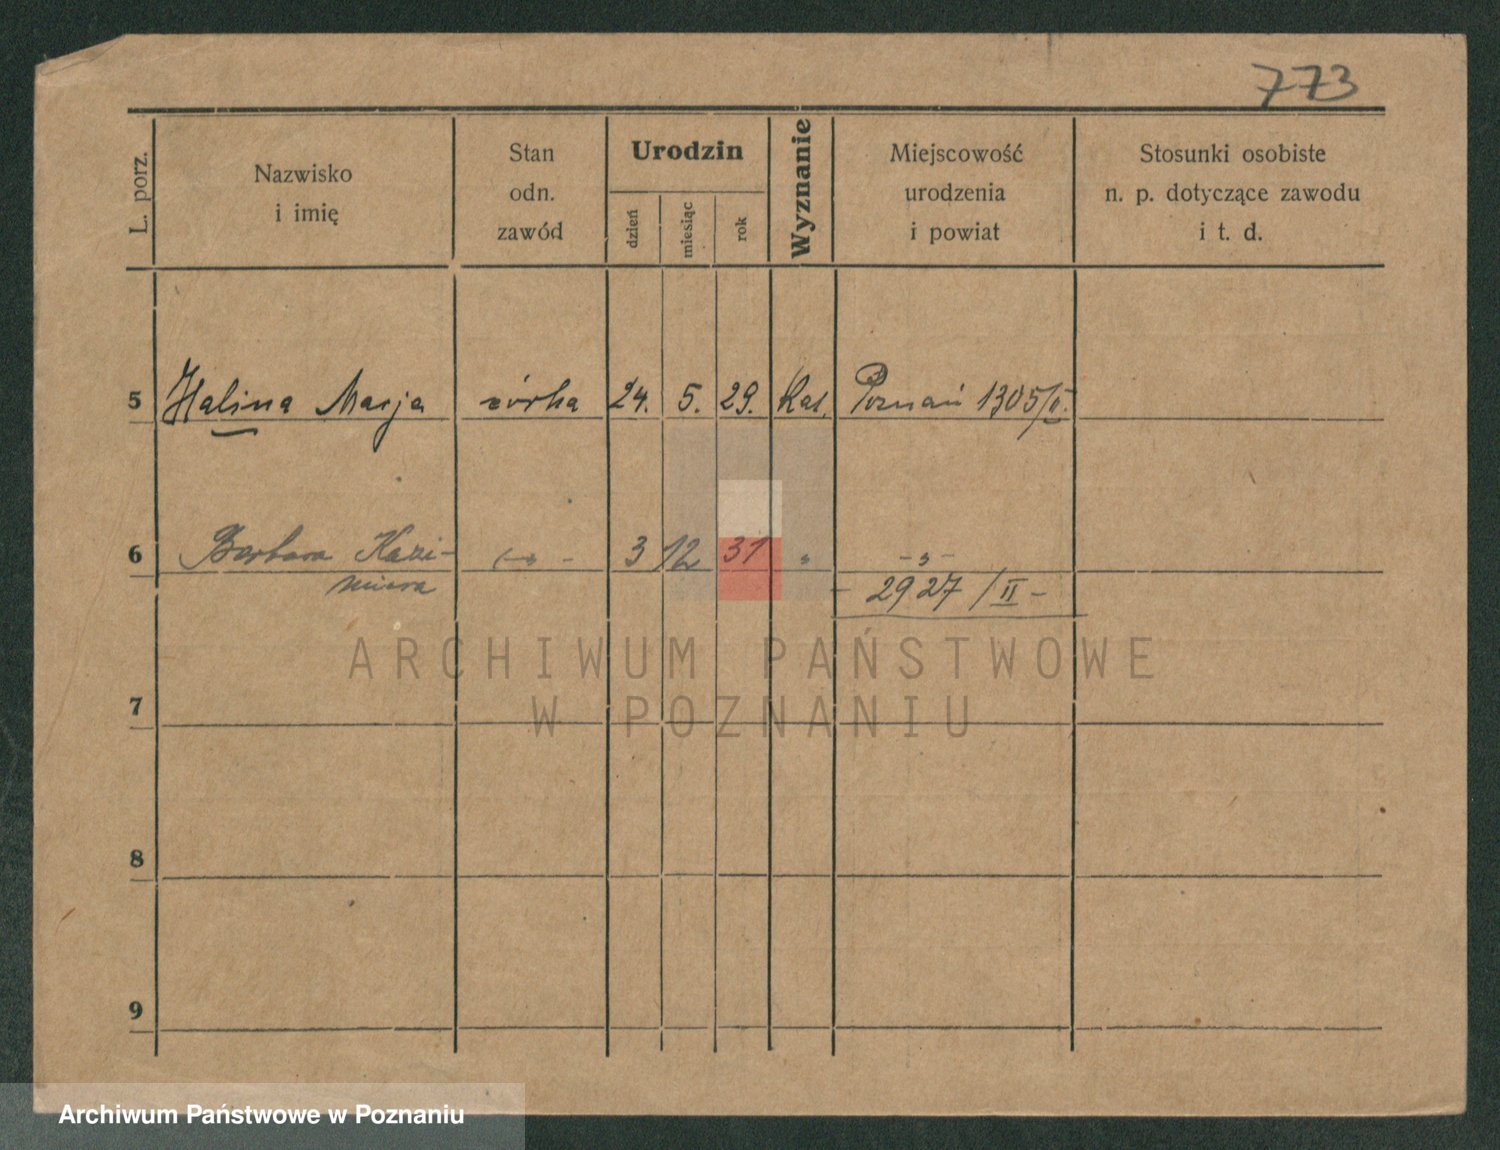 773
L. porz.
Nazwisko
i imię
Stan
odn.
zawód
Urodzin
dzień
miesiąc
rok
Wyznanie
Miejscowość
urodzenia
i powiat
Stosunki osobiste
n. p. dotyczące zawodu
i t. d.
5 Halina Marja córka 24. 5. 29. Kat. Poznań 1305/II.
6 Barbara Kazi- -„- 3 12 31 „ -„-
miera 2927/II -
ARCHIWUM PAŃSTWOWE
7
W POZNANIU
8
9
Archiwum Państwowe w Poznaniu